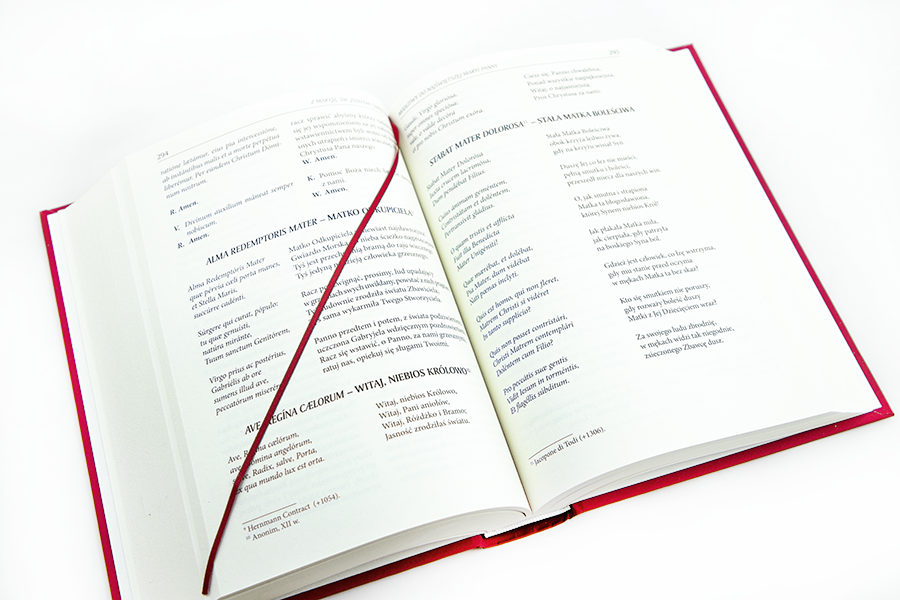 294
ratióne lætámur, eius pia intercessióne,
ab instántibus malis et a morte perpétua
liberémur. Per eúndem Christum Dómi-
num nostrum.
R. Amen.
V. Divínum auxílium máneat semper
nobíscum.
R. Amen.
racz sprawić abyśmy
się jej wspomnieniem
wstawiennictwem byli
Chrystusa Pana naszego.
W. Amen.
K. Pomoc Boża niech
z nami.
W. Amen.
ALMA REDEMPTORIS MATER – MATKO ODKUPICIELA
Alma Redemptóris Mater
quæ pérvia cæli porta manes,
et Stella Maris,
succúrre cadénti.
Súrgere qui curat, pópulo:
tu quæ genuísti,
natúra miránte,
Tuam sanctum Genitórem,
Virgo prius ac postérius,
Gabriélis ab ore
sumens illud ave,
peccatórum miserére.
Matko Odkupiciela
Gwiazdo Morska
Tyś jest przechodnią bramą do raju wiecznego
Tyś jedyną nadzieją człowieka grzesznego
Racz podźwignąć, prosimy, lud upadający
w grzechach swych uwikłany, powstać
Tyś cudownie zrodziła światu Zbawiciela,
Tyś sama wykarmiła Twego Stworzyciela.
Panno przedtem i potem, z świata podziwieniem
uczczona Gabryjela wdzięcznym pozdrowieniem
Racz się wstawić, o Panno, za nami grzesznymi
ratuj nas, opiekuj się sługami Twoimi.
AVE REGÍNA CÆLORUM – WITAJ, NIEBIOS KRÓLOWO
Ave, Regína cælórum,
ave, Dómina angelórum,
Salve, Radix, salve, Porta,
ex qua mundo lux est orta.
Witaj, niebios Królowo,
Witaj, Pani aniołów,
Witaj, Różdżko i Bramo,
Jasność zrodziłaś światu.
9 Hernmann Contract (+1054).
10 Anonim, XII w.
295
Gaude, Virgo gloriósa,
super omnes speciósa,
vale, o valde decóra
pro nobis Christum exóra.
Ciesz się, Panno chwalebna,
Ponad wszystkie najpiękniejsza
Witaj, o najśliczniejsza,
Proś Chrystusa za nami.
STABAT MATER DOLOROSA11 – STAŁA MATKA BOLEŚCIWA
Stabat Mater Dolorósa
Iuxta crucem lacrimósa,
Dum pendébat Fílius.
Cuius ánimam geméntem,
Contristátam et doléntem,
Pertransívit gládius.
O quam tristis et afflícta
Fuit illa Benedícta
Mater Unigéniti!
Quæ mærébat, et dolébat,
Pia Mater, dum vidébat
Nati pœnas ínclyti.
Quis est homo, qui non fleret,
Matrem Christi si vidéret
In tanto supplício?
Quis non posset contristári,
Christi Matrem contemplári
Doléntem cum Fílio?
Pro peccátis suæ gentis
Vidit Iesum in torméntis,
Et flagéllis súbditum.
Stała Matka Boleściwa
obok krzyża ledwo żywa,
gdy na krzyżu wisiał Syn
Duszę Jej co łez nie mieści,
pełną smutku i boleści,
przeszedł miecz dla naszych win.
O, jak smutna i strapiona
Matka ta błogosławiona,
której Synem niebios Król!
Jak płakała Matka miła,
jak cierpiała, gdy patrzyła
na boskiego Syna ból.
Gdzież jest człowiek, co łzę wstrzyma,
gdy mu stanie przed oczyma
w mękach Matka ta bez skaz?
Kto się smutkiem nie poruszy,
gdy rozważy boleść duszy
Matki z Jej Dziecięciem wraz?
Za swojego ludu zbrodnię,
w mękach widzi tak niegodnie,
zsieczonego Zbawcę dusz.
11 Jacopone di Todi (+1306).